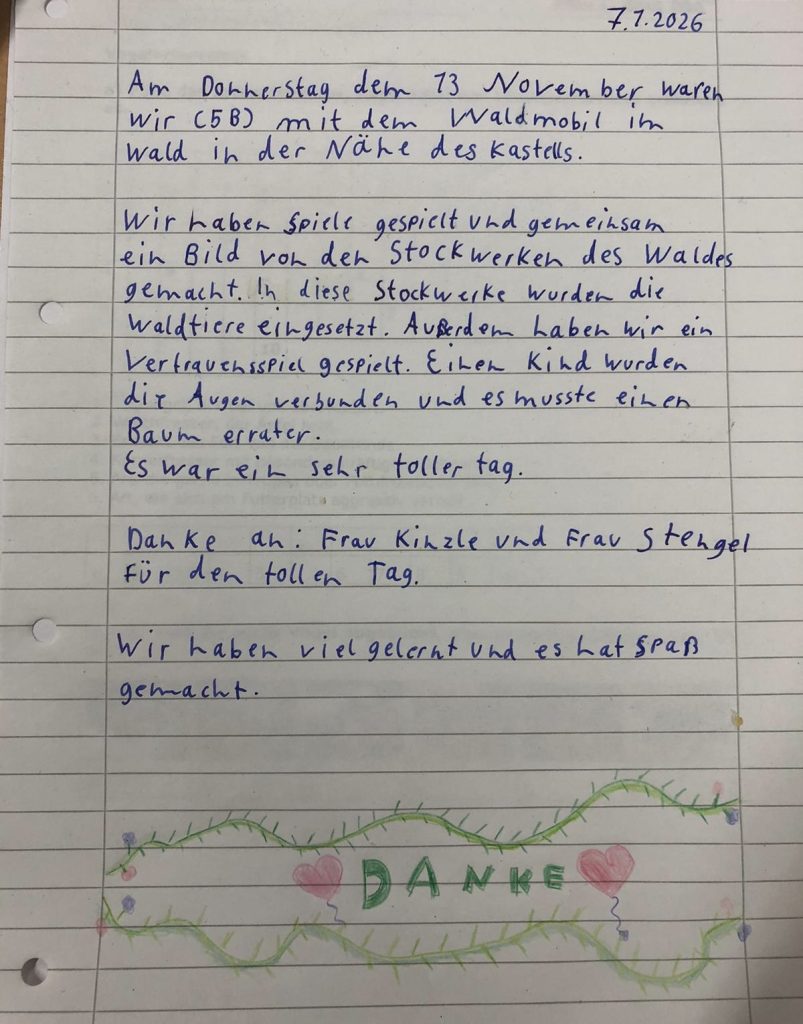 7.1.2026
Am Donnerstag dem 13 November waren
wir (5B) mit dem Waldmobil im
Wald in der Nähe des Kastells.
Wir haben Spiele gespielt und gemeinsam
ein Bild von den Stockwerken des Waldes
gemacht. In diese Stockwerke wurden die
Waldtiere eingesetzt. Außerdem haben wir ein
Vertrauensspiel gespielt. Einen Kind wurden
die Augen verbunden und es musste einen
Baum erraten.
Es war ein sehr toller tag.
Danke an: Frau Kinzle und Frau Stengel
für den tollen Tag.
Wir haben viel gelernt und es hat Spaß
gemacht.
DANKE